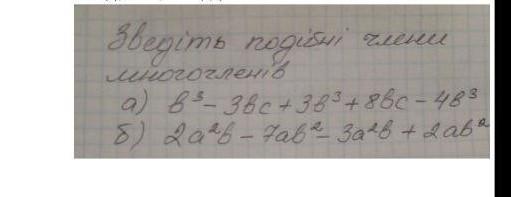 Зведіть подібні члени
многочленів
а) в³ - 3вс + 3в³ + 8вс - 4в³
б) 2а²в - 7ав² - 3а²в + 2ав²